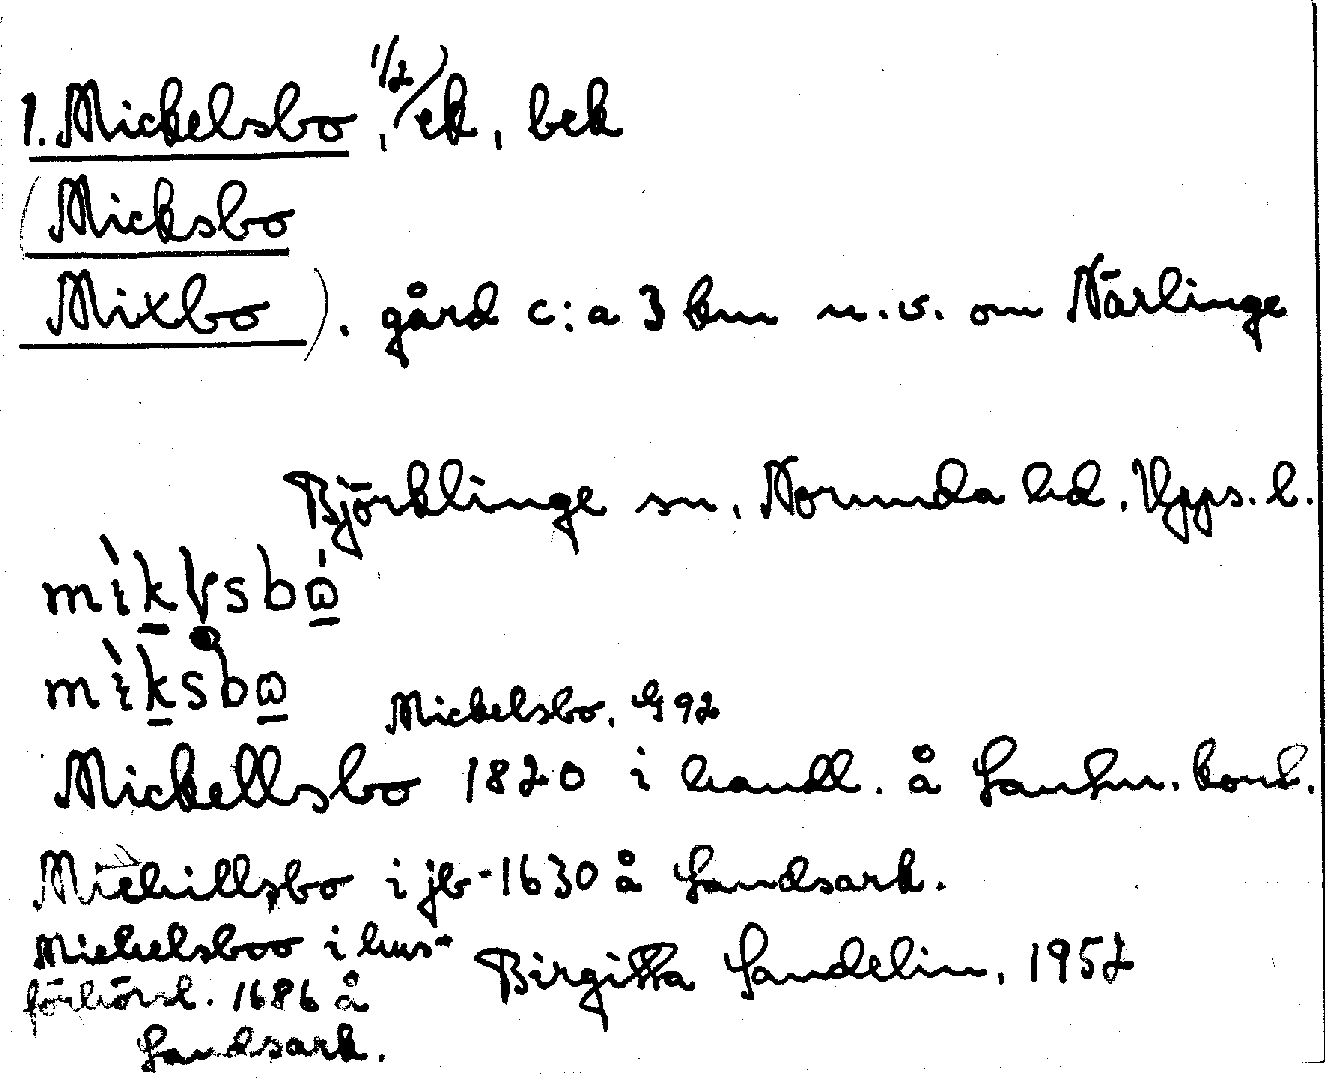 1. Mickelsbo, 1/2/ek, bek
(Micksbo
Mixbo). gård c:a 3 km n.v. om Närlinge
Björklinge sn, Norunda hd. Upps. l.
mìksbɷ
Mickelsbo, G 92
Mickellsbo 1820 i handl. å Lanhn. kont.
Michillsbo i jb 1630 å Landsark.
Michelsboo i hus-
förhörsl. 1686 å
Landsark.
Birgitta Sandelin, 1952